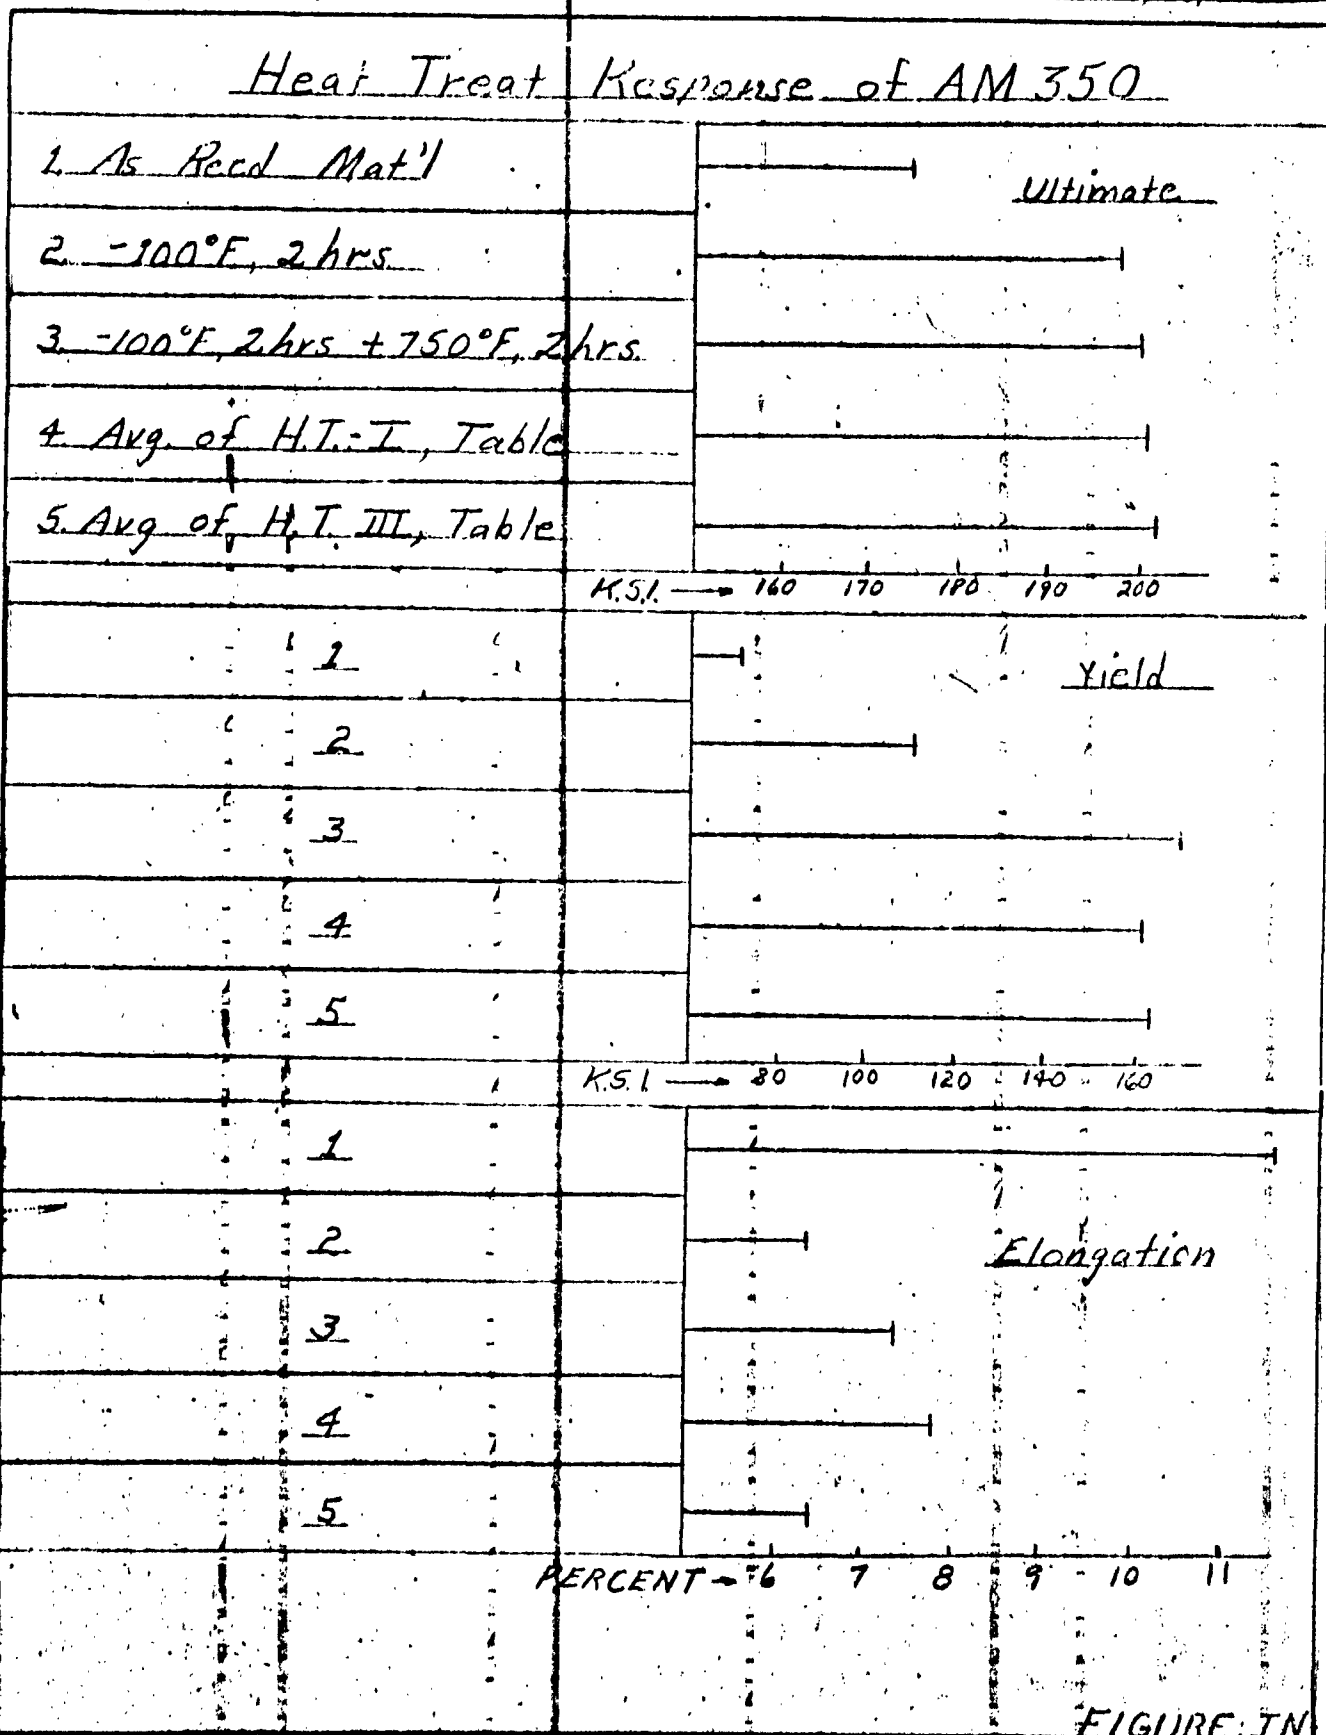 Heat Treat Response of AM 350
1. As Recd Mat'l
Ultimate
2. -100°F, 2 hrs.
3. -100°F, 2 hrs + 750°F, 2 hrs.
4. Avg. of H.T.-I, Table
5. Avg of H.T. III, Table
K.S.I. → 160 170 180 190 200
1
Yield
2
3
4
5
K.S.I. → 80 100 120 140 160
1
2
Elongation
3
4
5
PERCENT → 6 7 8 9 10 11
FIGURE: IN